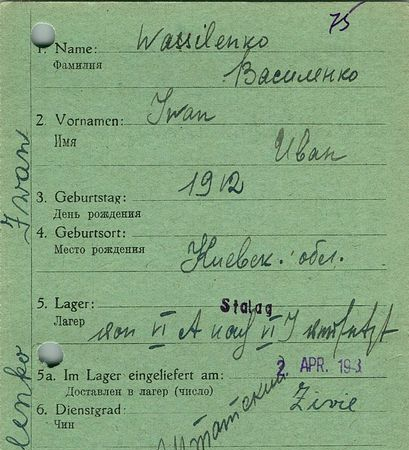 75
1. Name: Wassilenko
Фамилия
Василенко
2. Vornamen: Iwan
Имя
Иван
3. Geburtstag: 1912
День рождения
4. Geburtsort:
Место рождения
Киевск. обл.
5. Lager: Stalag
Лагер
von VI A nach VI J versetzt
5a. Im Lager eingeliefert am: 2. APR. 194
Доставлен в лагер (число)
6. Dienstgrad: Zivil
Чин
lenko Iwan